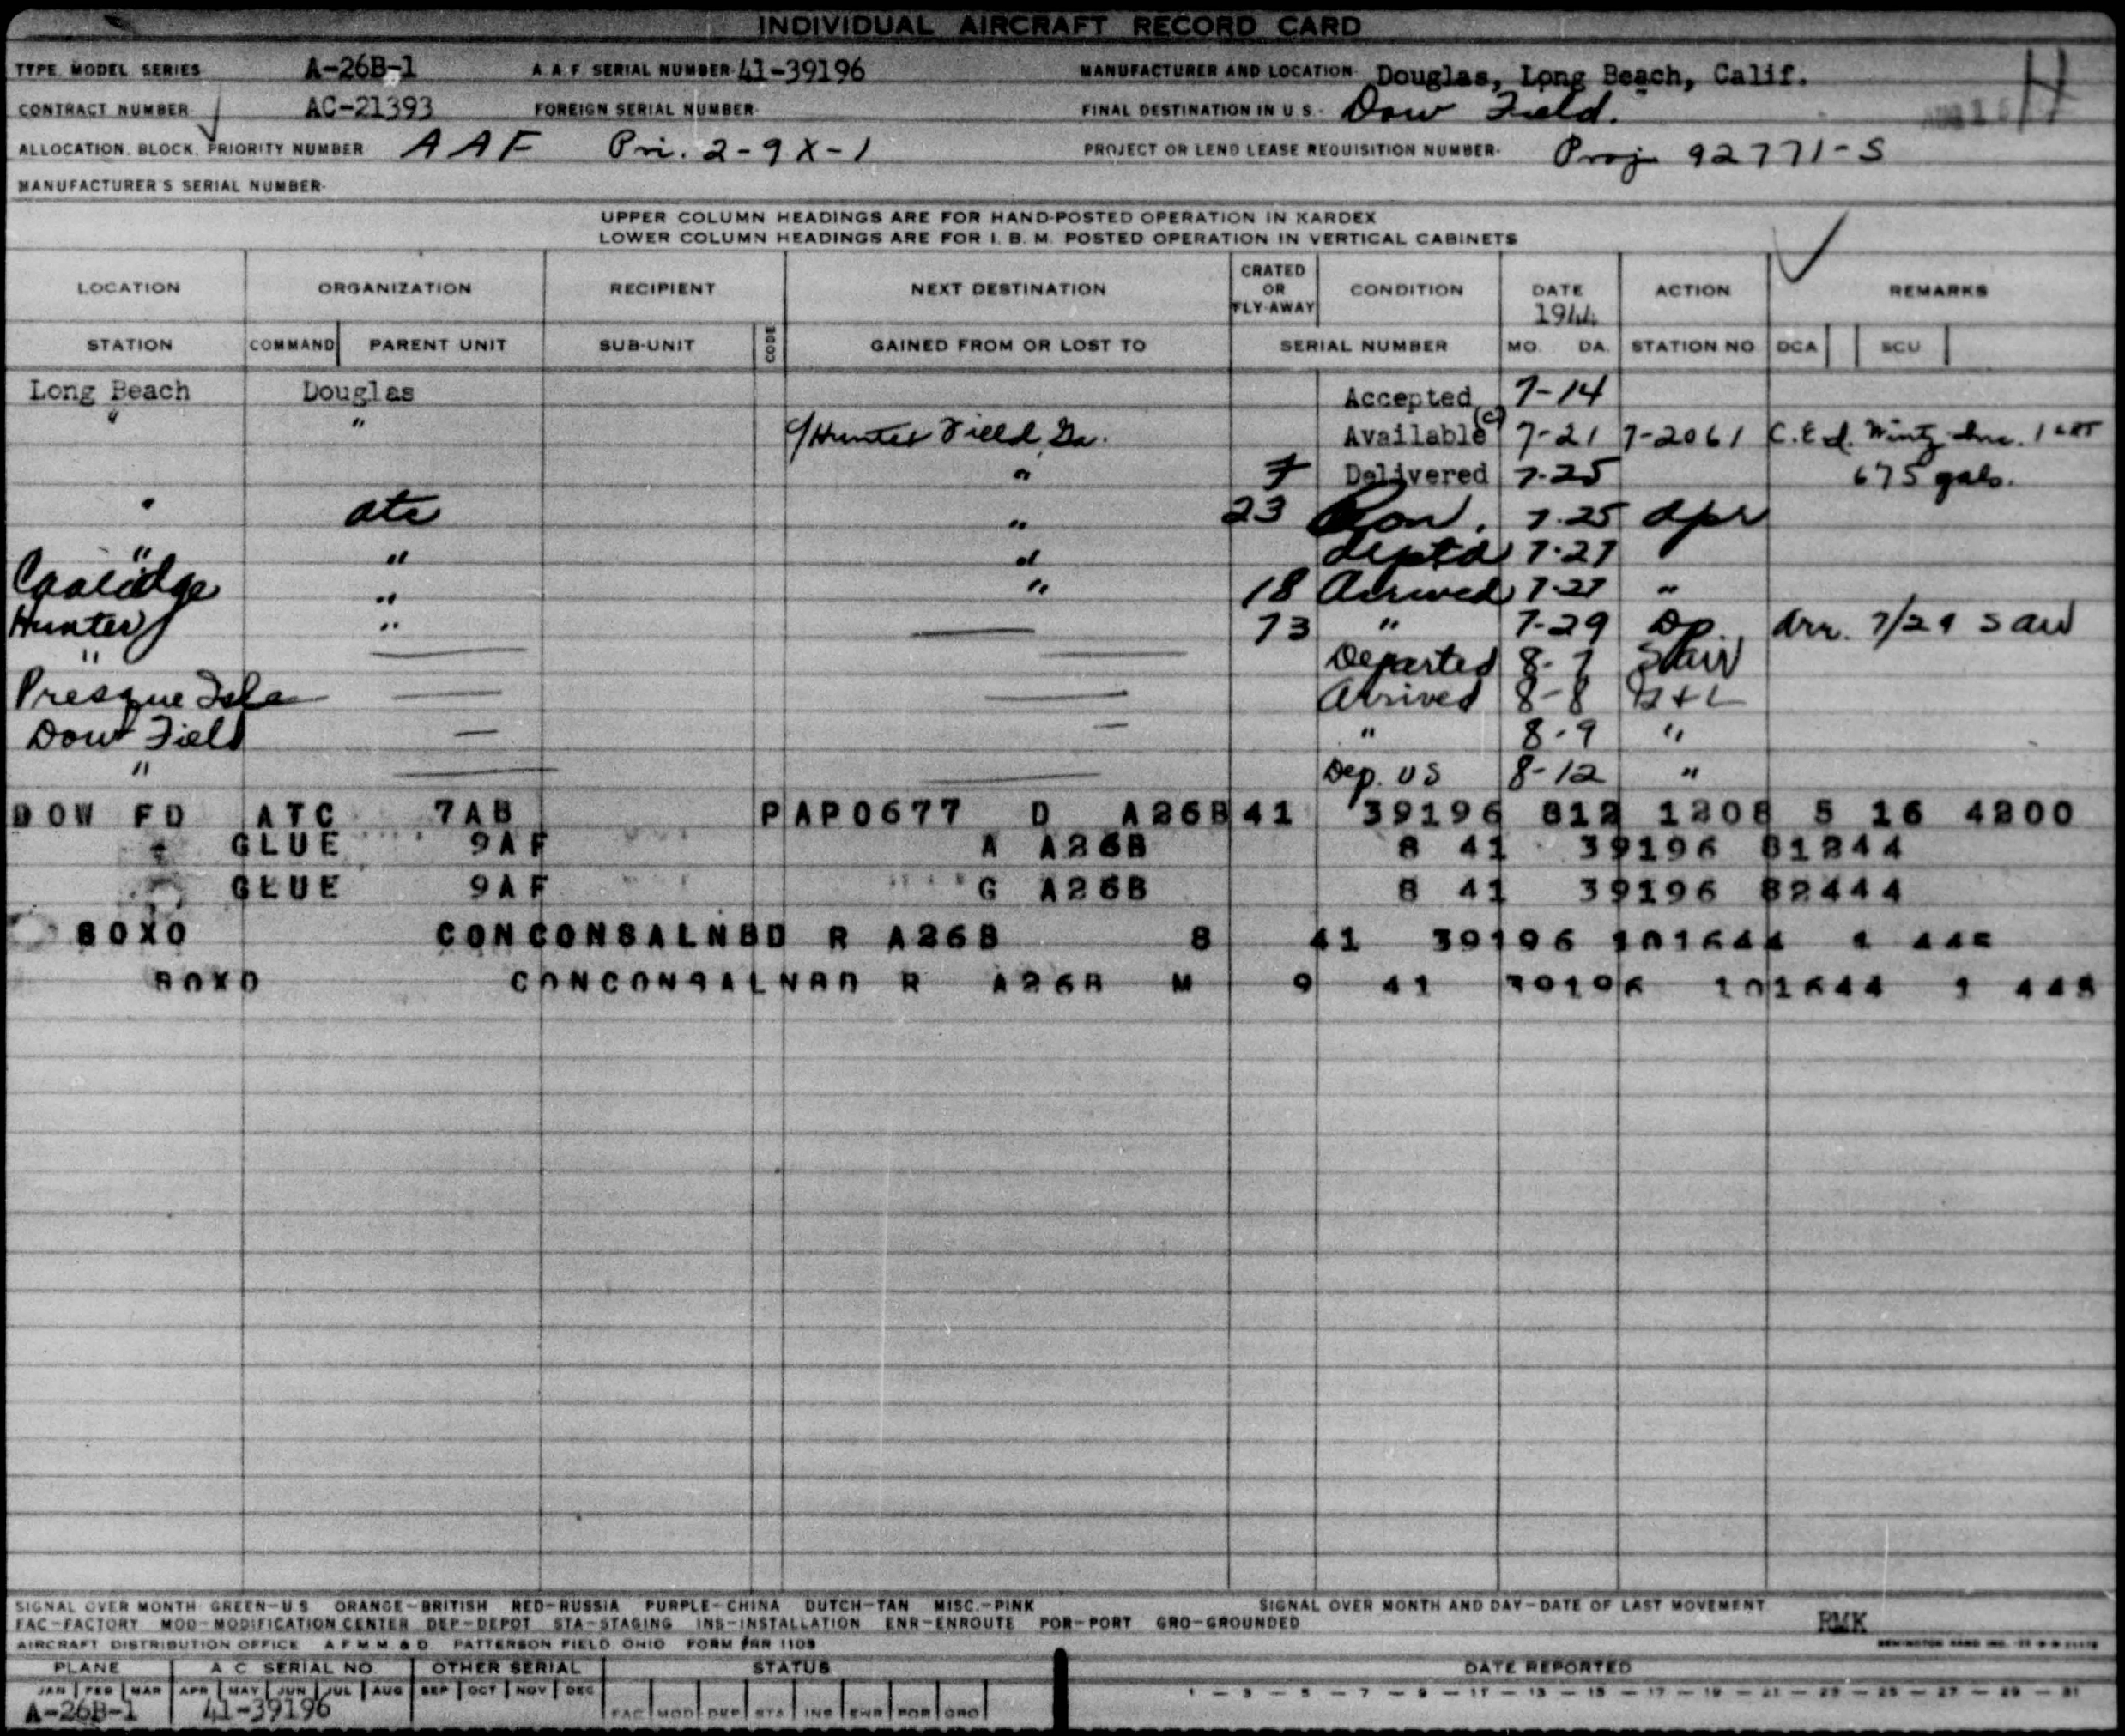 INDIVIDUAL AIRCRAFT RECORD CARD
TYPE MODEL SERIES A-26B-1 A.A.F. SERIAL NUMBER 41-39196 MANUFACTURER AND LOCATION Douglas, Long Beach, Calif. H
CONTRACT NUMBER AC-21393 FOREIGN SERIAL NUMBER FINAL DESTINATION IN U.S. Dow Field.
ALLOCATION, BLOCK, PRIORITY NUMBER AAF Pri. 2-9X-1 PROJECT OR LEND LEASE REQUISITION NUMBER Proj 92771-S
MANUFACTURER'S SERIAL NUMBER
UPPER COLUMN HEADINGS ARE FOR HAND-POSTED OPERATION IN KARDEX
LOWER COLUMN HEADINGS ARE FOR I. B. M. POSTED OPERATION IN VERTICAL CABINETS
LOCATION ORGANIZATION RECIPIENT NEXT DESTINATION CRATED OR FLY-AWAY CONDITION DATE 1944 ACTION REMARKS
STATION COMMAND PARENT UNIT SUB-UNIT CODE GAINED FROM OR LOST TO SERIAL NUMBER MO. DA. STATION NO DCA SCU
Long Beach Douglas Accepted 7-14
" " Hunter Field, Ga. Available (C) 7-21 7-2061 C.E.d.
" 7 Delivered 7-25 675 gals.
" atc " 23 7-25 dpr
" " " deptd 7-27
Coolidge " " 18 Arrived 7-27 "
Hunter " — 73 " 7-29 Dp. Arr. 7/29 Saw
" — — Departed 8-7 Saw
Presque Isle — — Arrived 8-8
Dow Field — — " 8-9 "
" — — Dep. US 8-12 "
DOW FD ATC 7AB PAP0677 D A26B 41 39196 812 1208 5 16 4200
GLUE 9AF A A26B 8 41 39196 81244
GLUE 9AF G A26B 8 41 39196 82444
BOXO CONCONSALNBD R A26B 8 41 39196 101644 1 445
BOXO CONCONSALNBD R A26B M 9 41 39196 101644 1 445
SIGNAL OVER MONTH GREEN-U S ORANGE-BRITISH RED-RUSSIA PURPLE-CHINA DUTCH-TAN MISC.-PINK SIGNAL OVER MONTH AND DAY-DATE OF LAST MOVEMENT
FAC-FACTORY MOD-MODIFICATION CENTER DEP-DEPOT STA-STAGING INS-INSTALLATION ENR-ENROUTE POR-PORT GRO-GROUNDED RMK
AIRCRAFT DISTRIBUTION OFFICE A F M M & D PATTERSON FIELD OHIO
PLANE A C SERIAL NO OTHER SERIAL STATUS DATE REPORTED
JAN FEB MAR APR MAY JUN JUL AUG SEP OCT NOV DEC 1 - 3 - 5 - 7 - 9 - 11 - 13 - 15 - 17 - 19 - 21 - 23 - 25 - 27 - 29 - 31
A-26B-1 41-39196 FAC MOD DEP STA INS ENR POR GRO